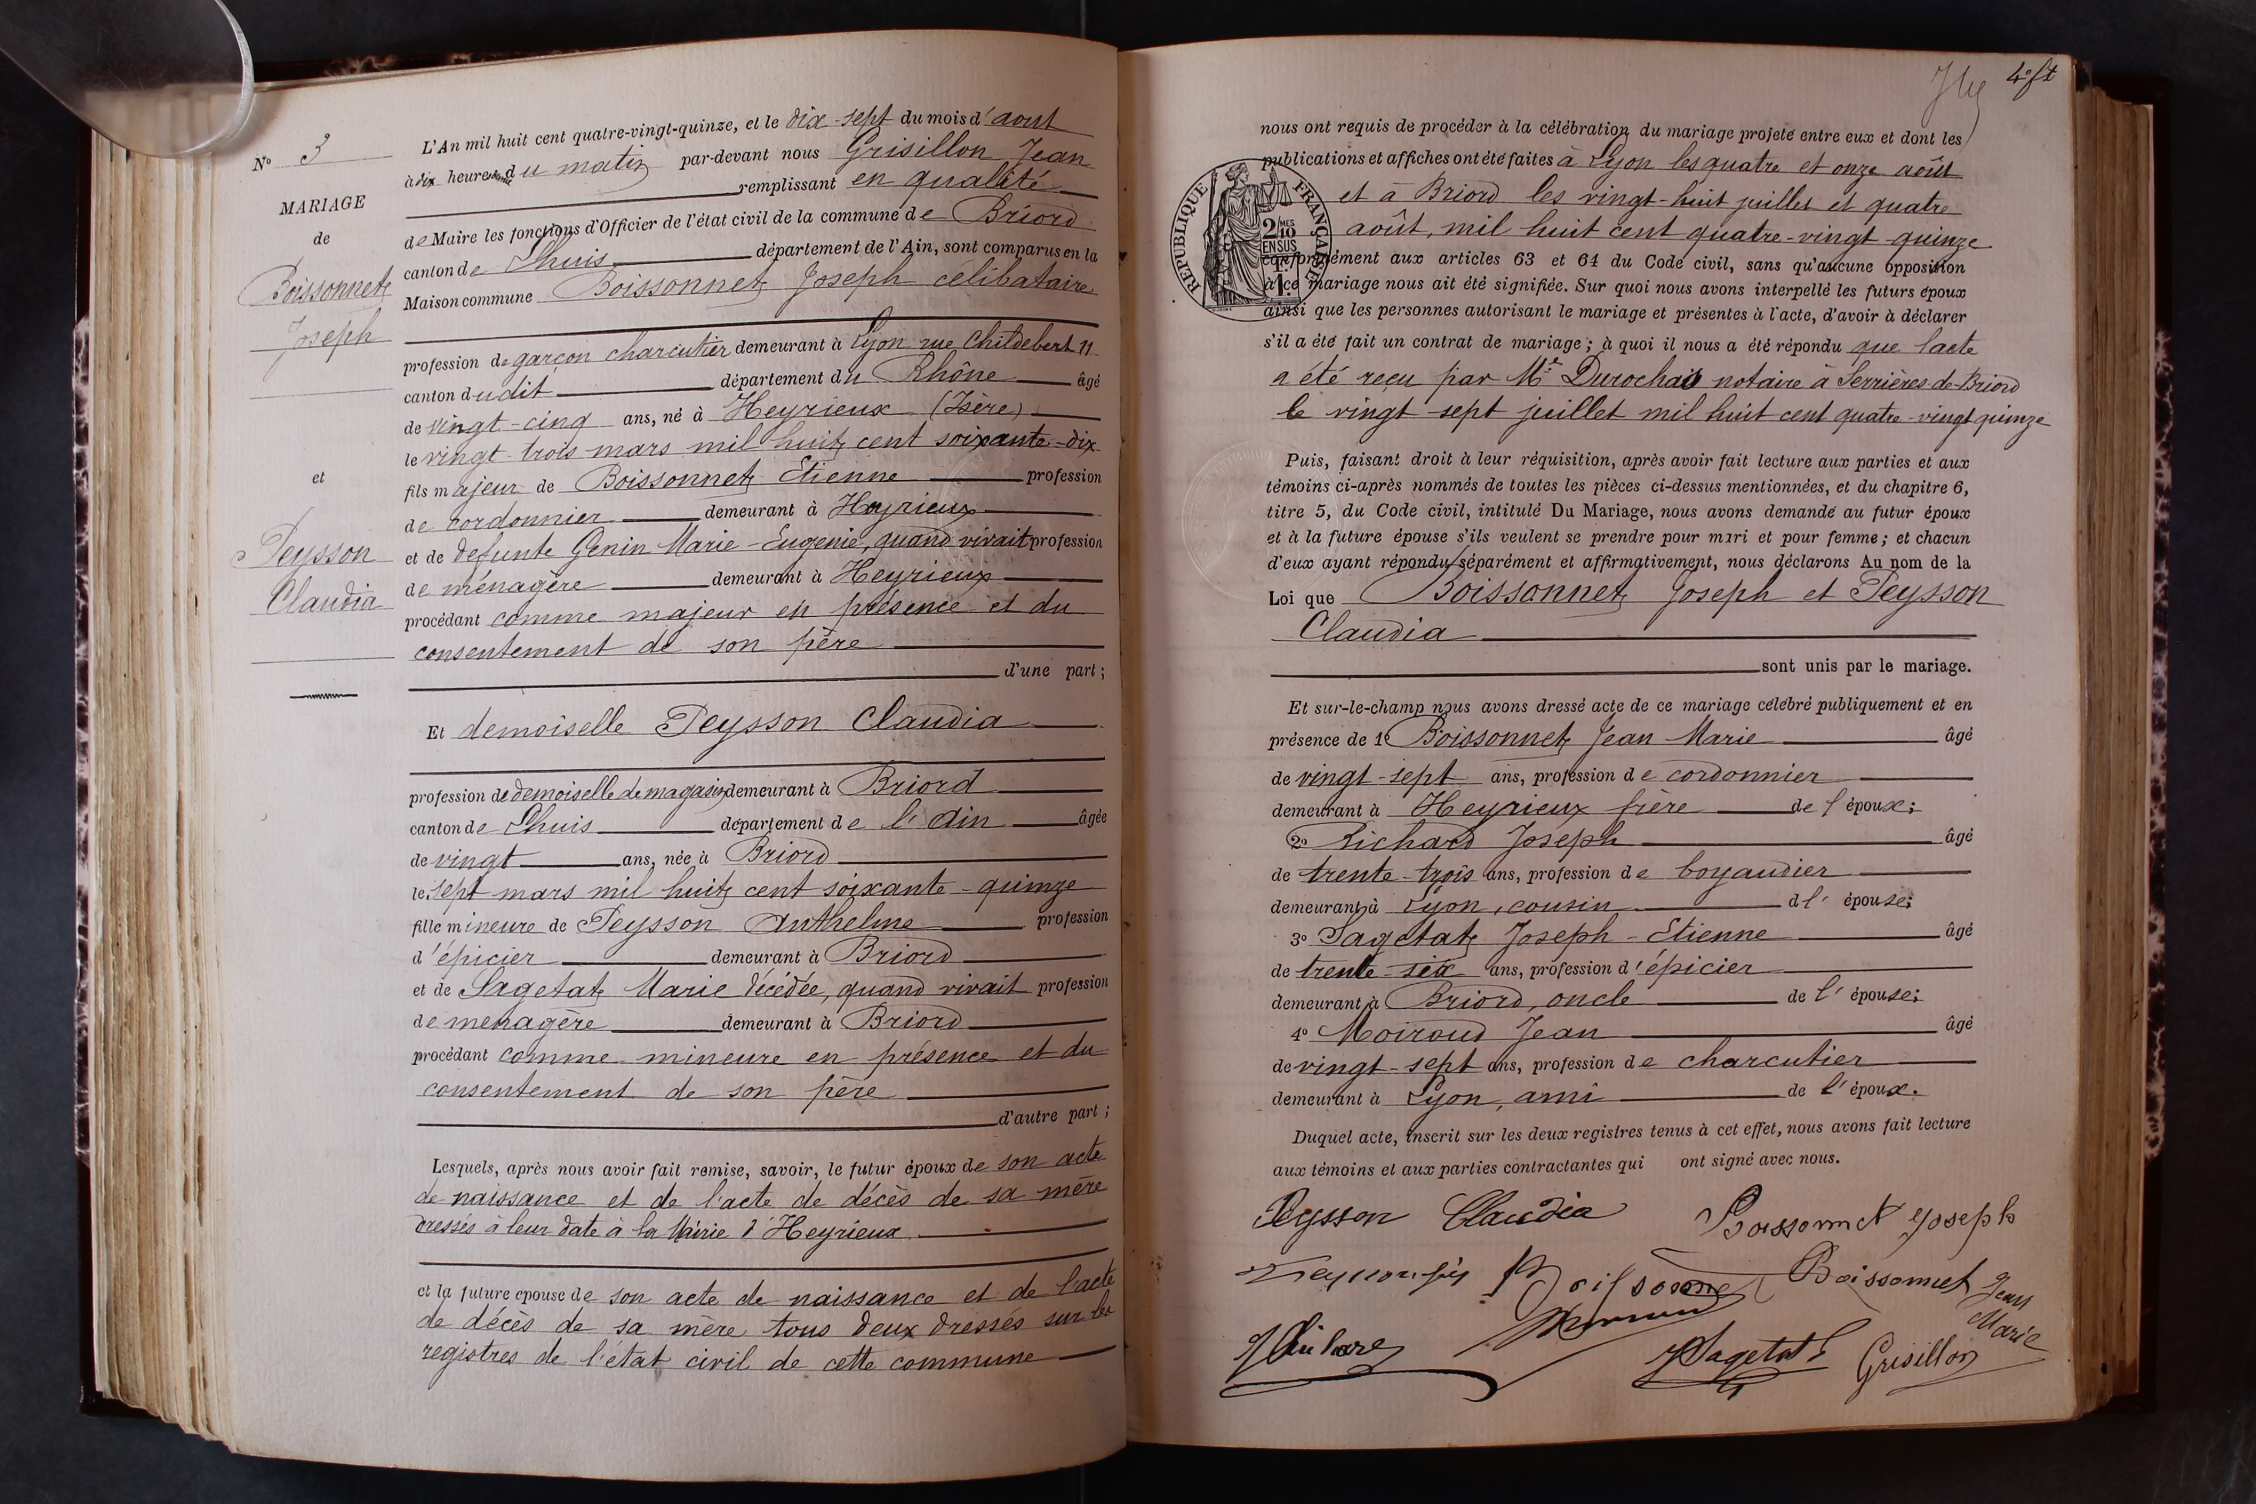 N° 3
MARIAGE
de
Boissonnet
Joseph
et
Peysson
Claudia
L'An mil huit cent quatre-vingt-quinze, et le dix-sept du mois d'aout
à dix heures du matin par-devant nous Grisillon Jean
remplissant en qualité
de Maire les fonctions d'Officier de l'état civil de la commune de Briord
canton de Lhuis département de l'Ain, sont comparus en la
Maison commune Boissonnet Joseph célibataire
profession de garçon charcutier demeurant à Lyon rue Childebert 11
canton dudit département du Rhône âgé
de vingt-cinq ans, né à Heyrieux (Isère)
le vingt-trois mars mil huit cent soixante-dix
fils majeur de Boissonnet Etienne profession
de cordonnier demeurant à Heyrieux
et de defunte Genin Marie-Eugenie, quand vivait profession
de ménagère demeurant à Heyrieux
procédant comme majeur en présence et du
consentement de son père
d'une part;
Et demoiselle Peysson Claudia
profession de demoiselle de magasin demeurant à Briord
canton de Lhuis département de l'Ain âgée
de vingt ans, née à Briord
le sept mars mil huit cent soixante-quinze
fille mineure de Peysson Anthelme profession
d'épicier demeurant à Briord
et de Sagetat Marie décédée, quand vivait profession
de menagère demeurant à Briord
procédant comme mineure en présence et du
consentement de son père
d'autre part;
Lesquels, après nous avoir fait remise, savoir, le futur époux de son acte
de naissance et de l'acte de décès de sa mère
dressés à leur date à la Mairie d'Heyrieux
et la future epouse de son acte de naissance et de l'acte
de décès de sa mère tous deux dressés sur les
registres de l'état civil de cette commune
4e ft
nous ont requis de procéder à la célébration du mariage projeté entre eux et dont les
publications et affiches ont été faites à Lyon les quatre et onze août
et à Briord les vingt-huit juillet et quatre
août, mil huit cent quatre-vingt quinze
conformément aux articles 63 et 64 du Code civil, sans qu'aucune opposition
à ce mariage nous ait été signifiée. Sur quoi nous avons interpellé les futurs époux
ainsi que les personnes autorisant le mariage et présentes à l'acte, d'avoir à déclarer
s'il a été fait un contrat de mariage; à quoi il nous a été répondu que l'acte
a été reçu par Me Durochat notaire à Serrières de Briord
le vingt sept juillet mil huit cent quatre-vingt quinze
RÉPUBLIQUE FRANÇAISE
2/10 MES
EN SUS
1F.
Puis, faisant droit à leur réquisition, après avoir fait lecture aux parties et aux
témoins ci-après nommés de toutes les pièces ci-dessus mentionnées, et du chapitre 6,
titre 5, du Code civil, intitulé Du Mariage, nous avons demandé au futur époux
et à la future épouse s'ils veulent se prendre pour mari et pour femme; et chacun
d'eux ayant répondu séparément et affirmativement, nous déclarons Au nom de la
Loi que Boissonnet Joseph et Peysson
Claudia
sont unis par le mariage.
Et sur-le-champ nous avons dressé acte de ce mariage célébré publiquement et en
présence de 1° Boissonnet Jean Marie âgé
de vingt-sept ans, profession de cordonnier
demeurant à Heyrieux frère de l'époux;
2° Richard Joseph âgé
de trente-trois ans, profession de boyaudier
demeurant à Lyon, cousin d l' épouse;
3° Sagetat Joseph-Etienne âgé
de trente-six ans, profession d'épicier
demeurant à Briord, oncle de l'épouse;
4° Moiroud Jean âgé
de vingt-sept ans, profession de charcutier
demeurant à Lyon, ami de l'époux.
Duquel acte, inscrit sur les deux registres tenus à cet effet, nous avons fait lecture
aux témoins et aux parties contractantes qui ont signé avec nous.
Peysson Claudia Boissonnet Joseph
Boissonnet Boissonnet Jean
Marie
Sagetat Grisillon